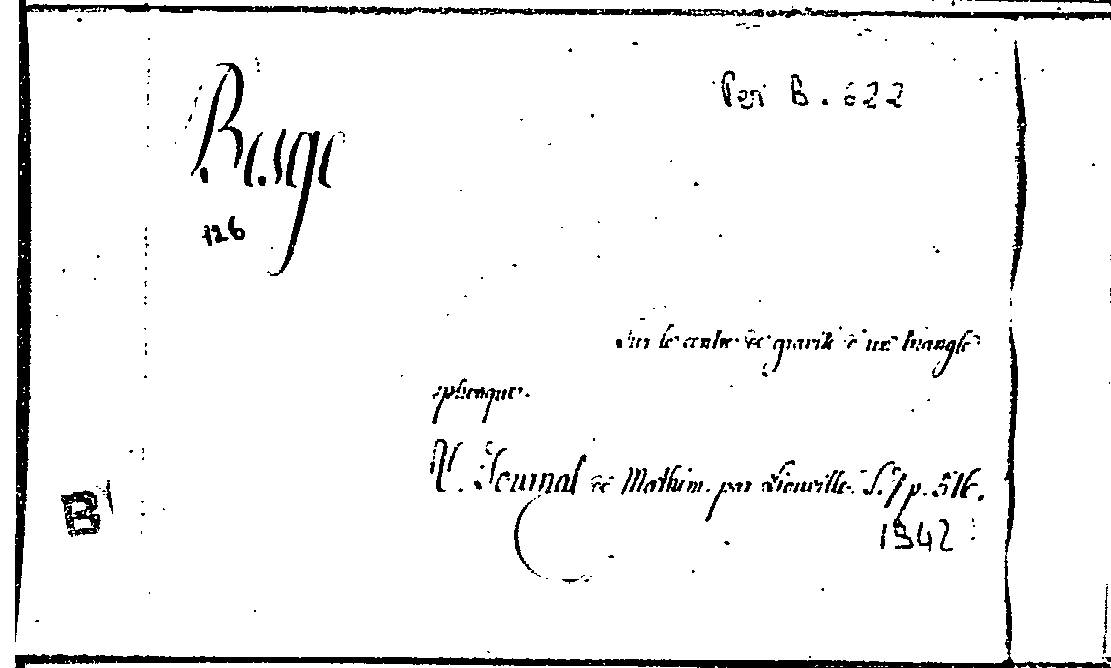 Besge
Per B. 622
126
Sur le centre de gravité d'un triangle
sphérique.
V. Journal de Mathém. par Liouville. S. 7 p. 516.
1942
B